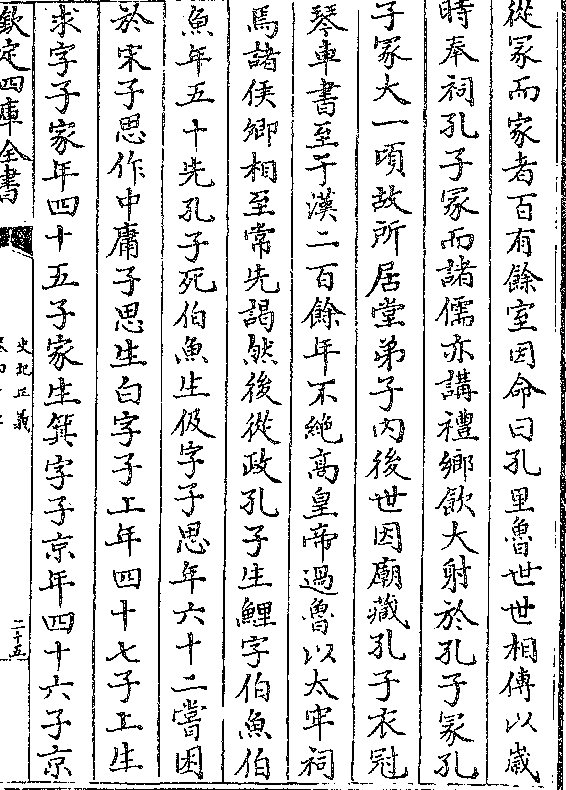 從冢而家者百有餘室因命曰孔里魯世世相傳以歲
時奉祠孔子冢而諸儒亦講禮鄉飲大射於孔子冢孔
子冢大一頃故所居堂弟子内後世因廟藏孔子衣冠
琴車書至于漢二百餘年不絶高皇帝過魯以太牢祠
焉諸侯卿相至常先謁然後從政孔子生鯉字伯魚伯
魚年五十先孔子死伯魚生伋字子思年六十二嘗困
於宋子思作中庸子思生白字子上年四十七子上生
求字子家年四十五子家生箕字子京年四十六子京
欽定四庫全書
史記正義
二十五